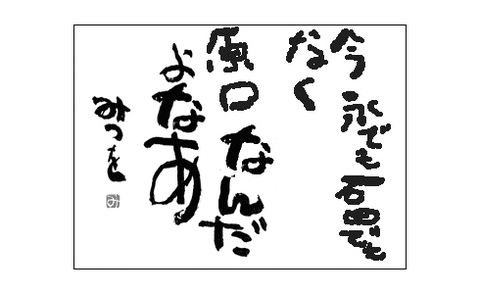 今 永でも 石田でも
なく
原口 なんだ
よなあ
みつを